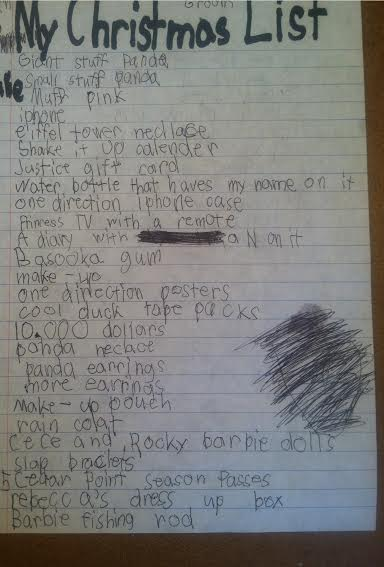 My Christmas List
Giant stuff Panda
Small stuff panda
Muff pink
iphone
eiffel tower necllace
Shake it Up calender
Justice gift card
Water bottle that haves my name on it
one direction iphone case
Prinress TV with a remote
A diary with a N on it
Basooka gum
make-up
one direction posters
cool duck tape packs
10,000 dollars
panda neclace
panda earrings
more earrings
Make-up pouch
rain coat
Cece and Rocky barbie dolls
slap braclets
5 Cedar Point season Passes
rebecca's dress up box
Barbie fishing rod